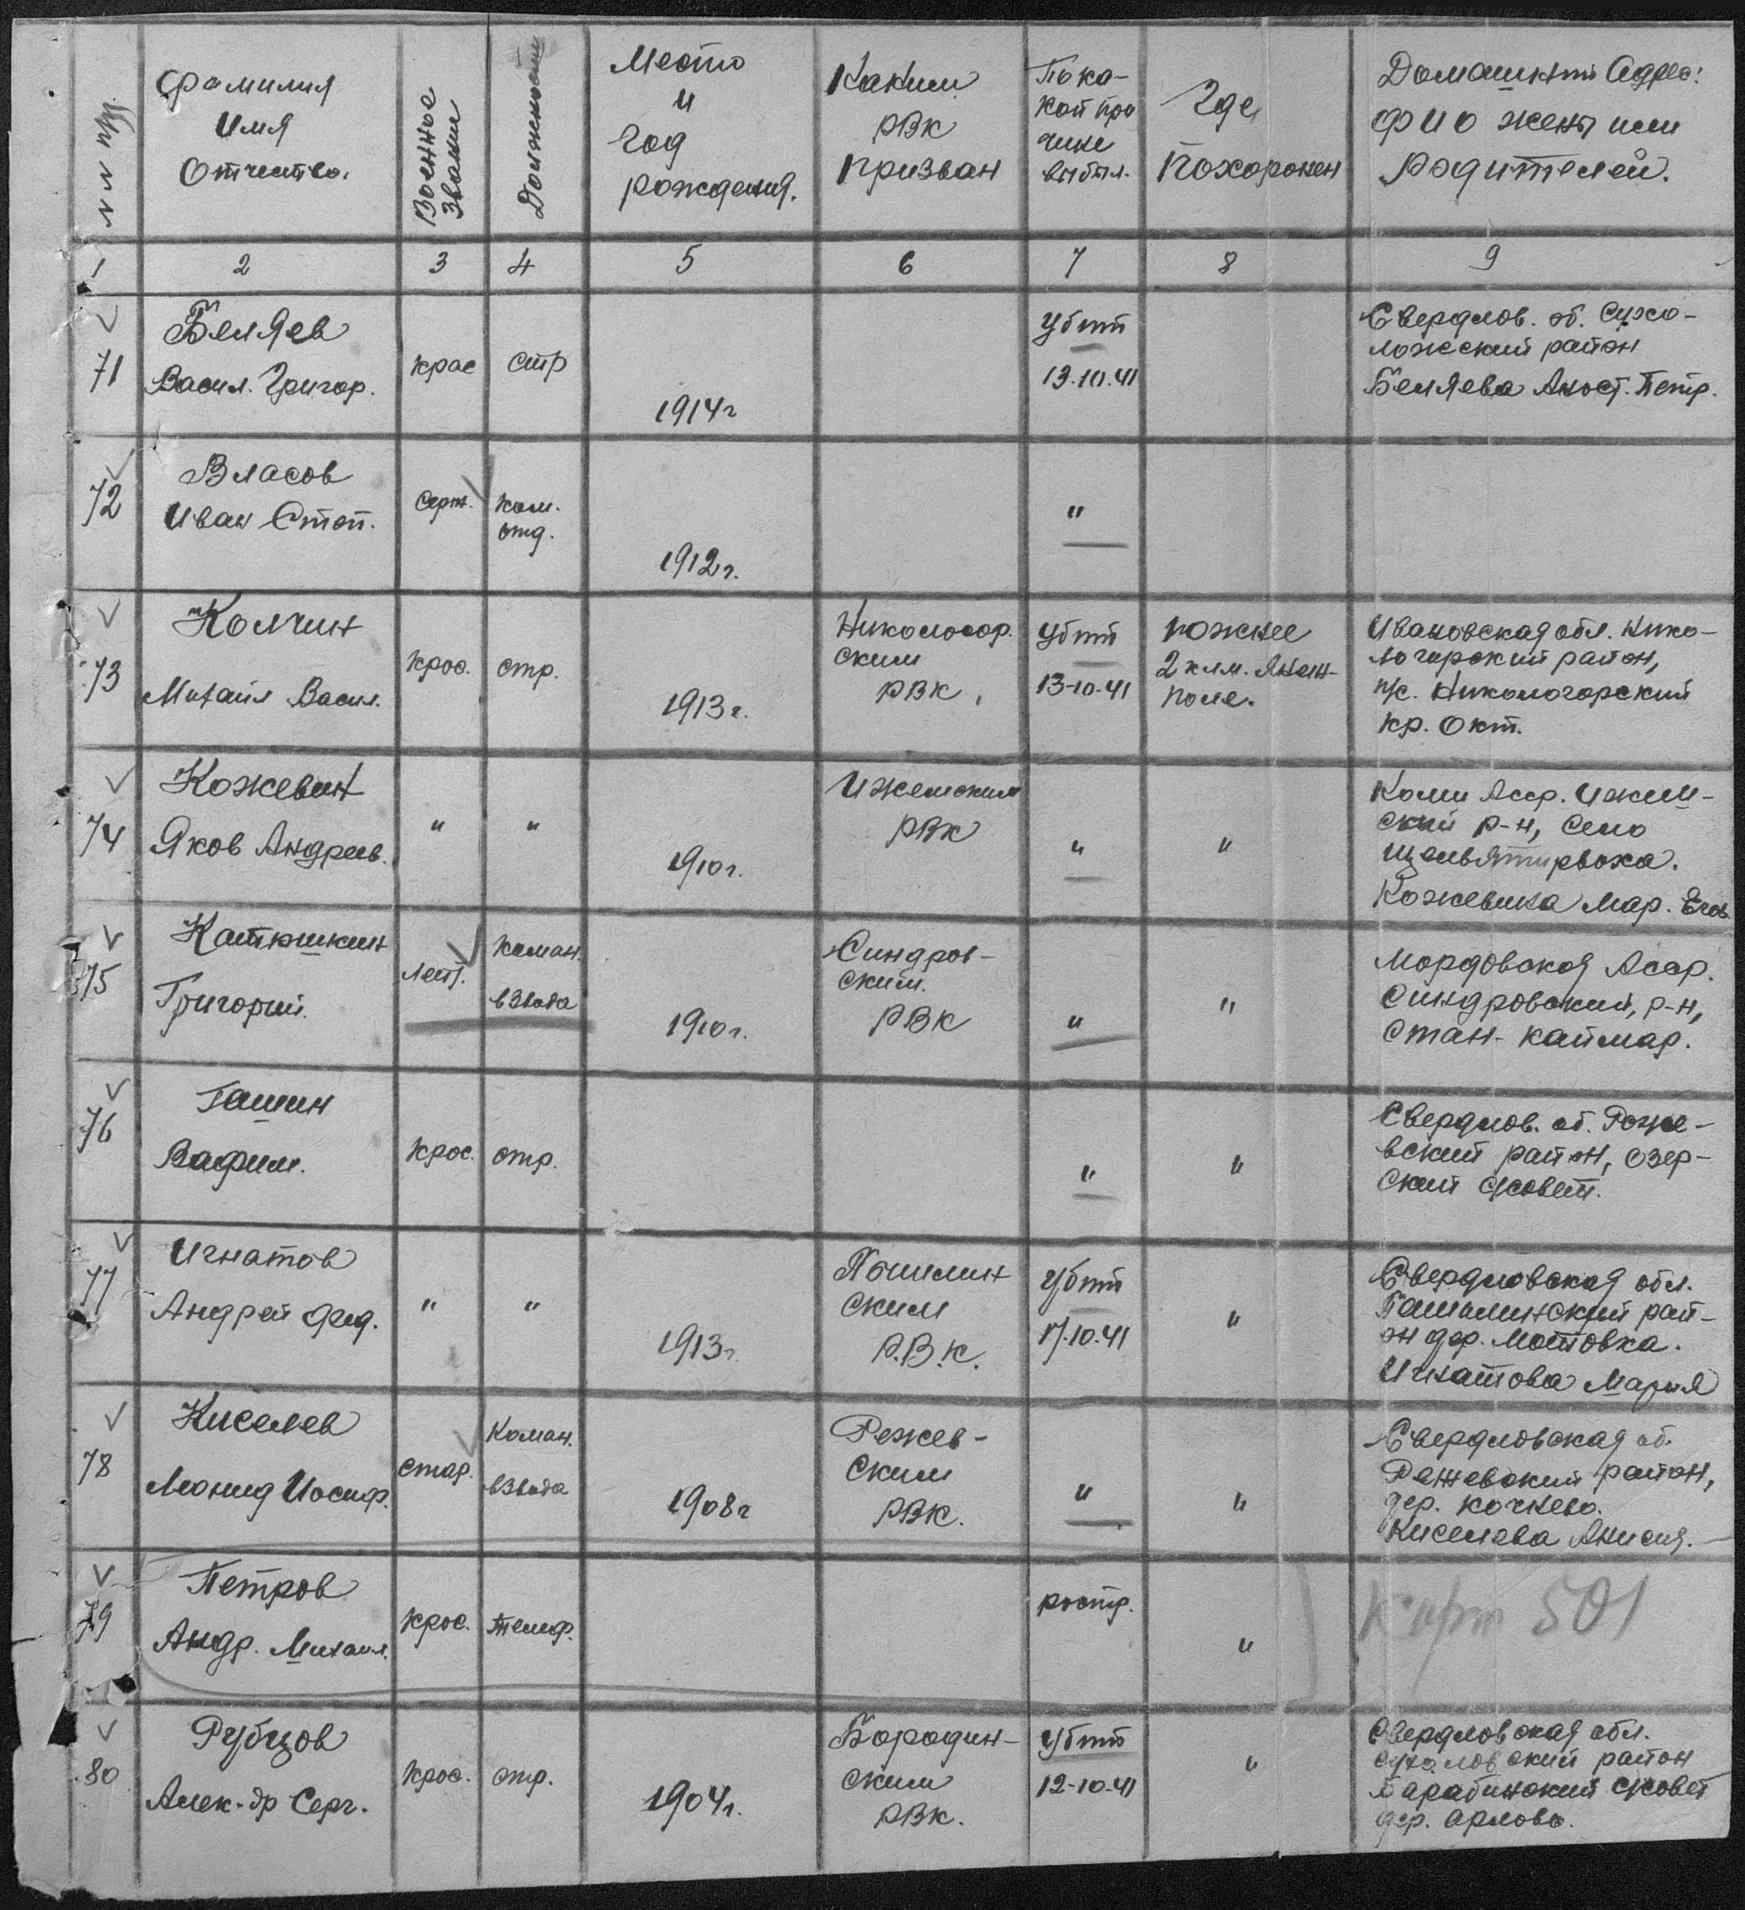 N N п/п.
Фамилия
Имя
Отчество.
Военное
звание
Должность
Место
и
год
рождения.
Каким
РВК
призван
По ка-
кой при
чине
выбыл.
Где
похоронен
Домашний Адрес:
Ф И О жены или
родителей.
1 2 3 4 5 6 7 8 9
71
Беляев
Васил. Григор.
крас
стр
1914г
Убит
13.10.41
Свердлов. об. Сухо-
ложский район
Беляева Анаст. Петр.
72
Власов
Иван Степ.
Серж.
ком.
отд.
1912г.
"
73
Колчин
Михаил Васил.
крас.
стр.
1913г.
Никологор.
ским
РВК
Убит
13-10-41
южнее
2 клм.
поле.
Ивановская обл. Нико-
логорский район,
п/с. Никологорский
кр. Окт.
74
Кожевин
Яков Андреев.
"
"
1910г.
Ижемским
РВК
"
"
Коми Асср. Ижем-
ский р-н, село
Кожевина Мар. Егов
75
Катюшкин
Григорий.
лейт.
Коман.
взвода
1910г.
Синдров-
ским.
РВК
"
"
Мордовская Асср.
Синдровский, р-н,
стан- каймар.
76
Гашин
Вафим.
крас.
стр.
"
"
Свердлов. об. Реже-
вский район, озер-
ский с/совет.
77
Игнатов
Андрей Фед.
"
"
1913г.
Пышмин
ским
Р.В.К.
Убит
17.10.41
"
Свердловская обл.
Пышминский рай-
он дер. Мотовка.
Игнатова Мария
78
Киселев
Леонид Иосиф.
стар.
Коман.
взвода
1908г
Режев-
ским
РВК.
"
"
Свердловская об.
Режевский район,
дер. кочнево.
Киселева Анисия.
79
Петров
Андр. Михаил.
крас.
телеф.
расстр.
"
карт 501
80
Рубцов
Алек-др Серг.
крас.
стр.
1904г.
Бородин-
ским
РВК.
Убит
12-10-41
"
Свердловская обл.
район
с/совет
дер. Орлово.